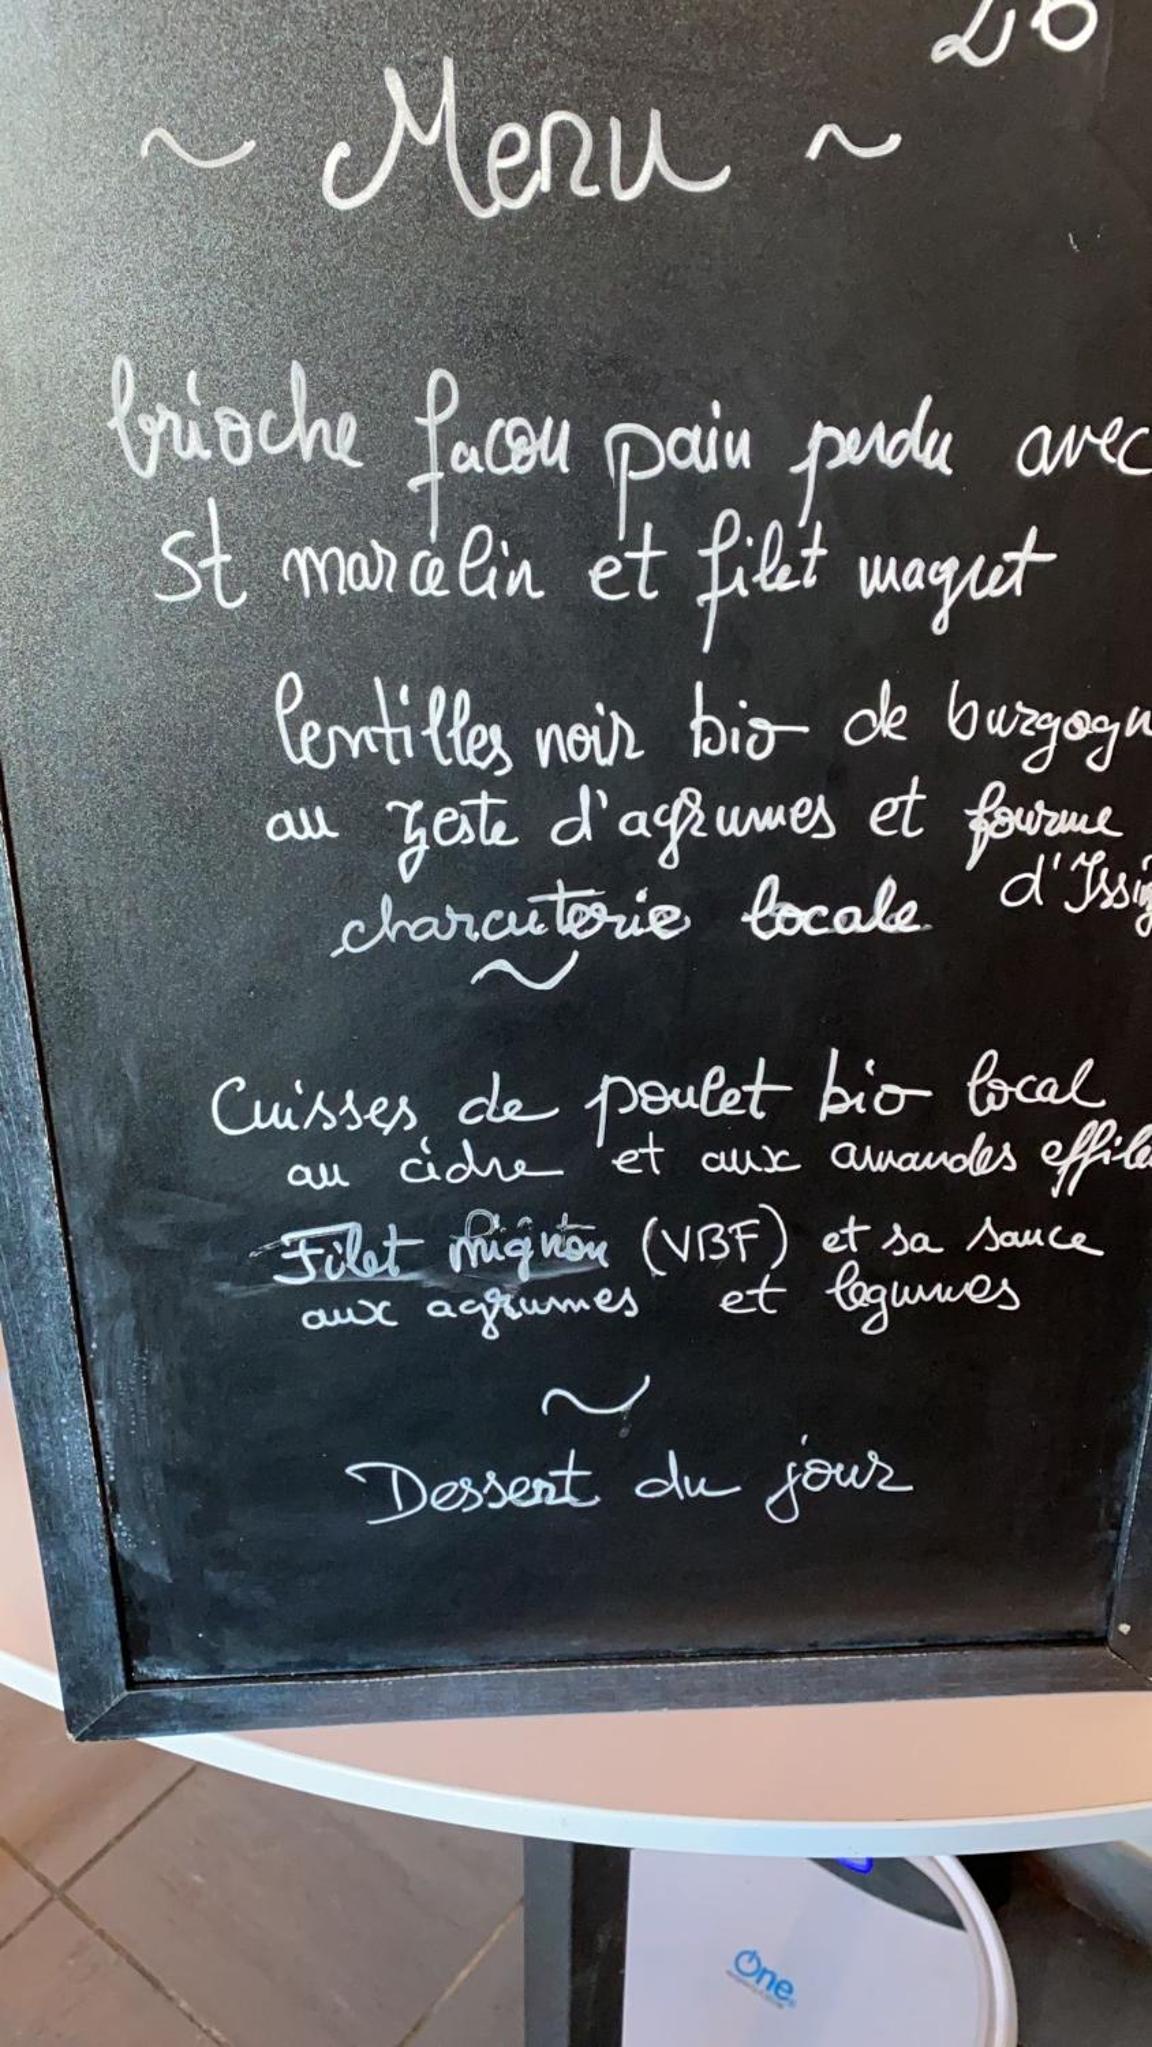 26
~ Menu ~
brioche facon pain perdu avec
St marcelin et filet magret
lentilles noir bio de burgogn
au zeste d'agrumes et fourme
d'Issig
charcuterie locale
~
Cuisses de poulet bio local
au cidre et aux amandes effilé
Filet Mignon (VBF) et sa sauce
aux agrumes et legumes
~
Dessert du jour
One